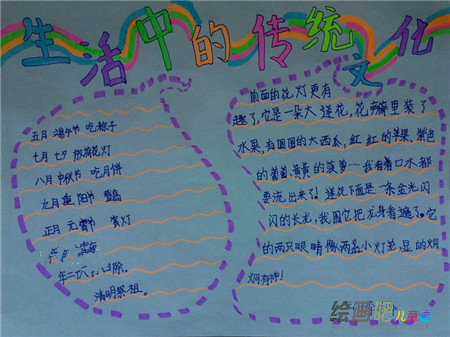 生活中的传统文化
五月 端午节 吃粽子
七月 七夕 放荷花灯
八月 中秋节 吃月饼
九月 重阳节 登高
正月 元宵节 赏灯
清明祭祖。
前面的花灯更有
趣了,它是一朵大莲花,花瓣里装了
水果,有圆圆的大西瓜,红红的苹果、紫色
的葡萄、黄黄的菠萝…我看着口水都
要流出来了!莲花下面是一条金光闪
闪的长龙,我围它把龙身看遍了。它
的两只眼睛像两盏小灯笼,显的炯
炯有神!
绘画吧儿童画